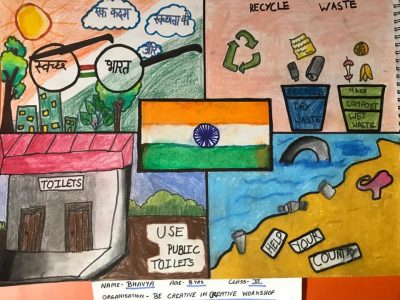 एक कदम
स्वच्छता की
ओर
स्वच्छ भारत
RECYCLE WASTE
RECYCLE
DRY
WASTE
MAKE
COMPOST
WET
WASTE
TOILETS
USE
PUBLIC
TOILETS
HELP YOUR COUNTRY
NAME- BHAVYA AGE- 8 YRS CLASS- III
ORGANISATION - BE CREATIVE IN CREATIVE WORKSHOP